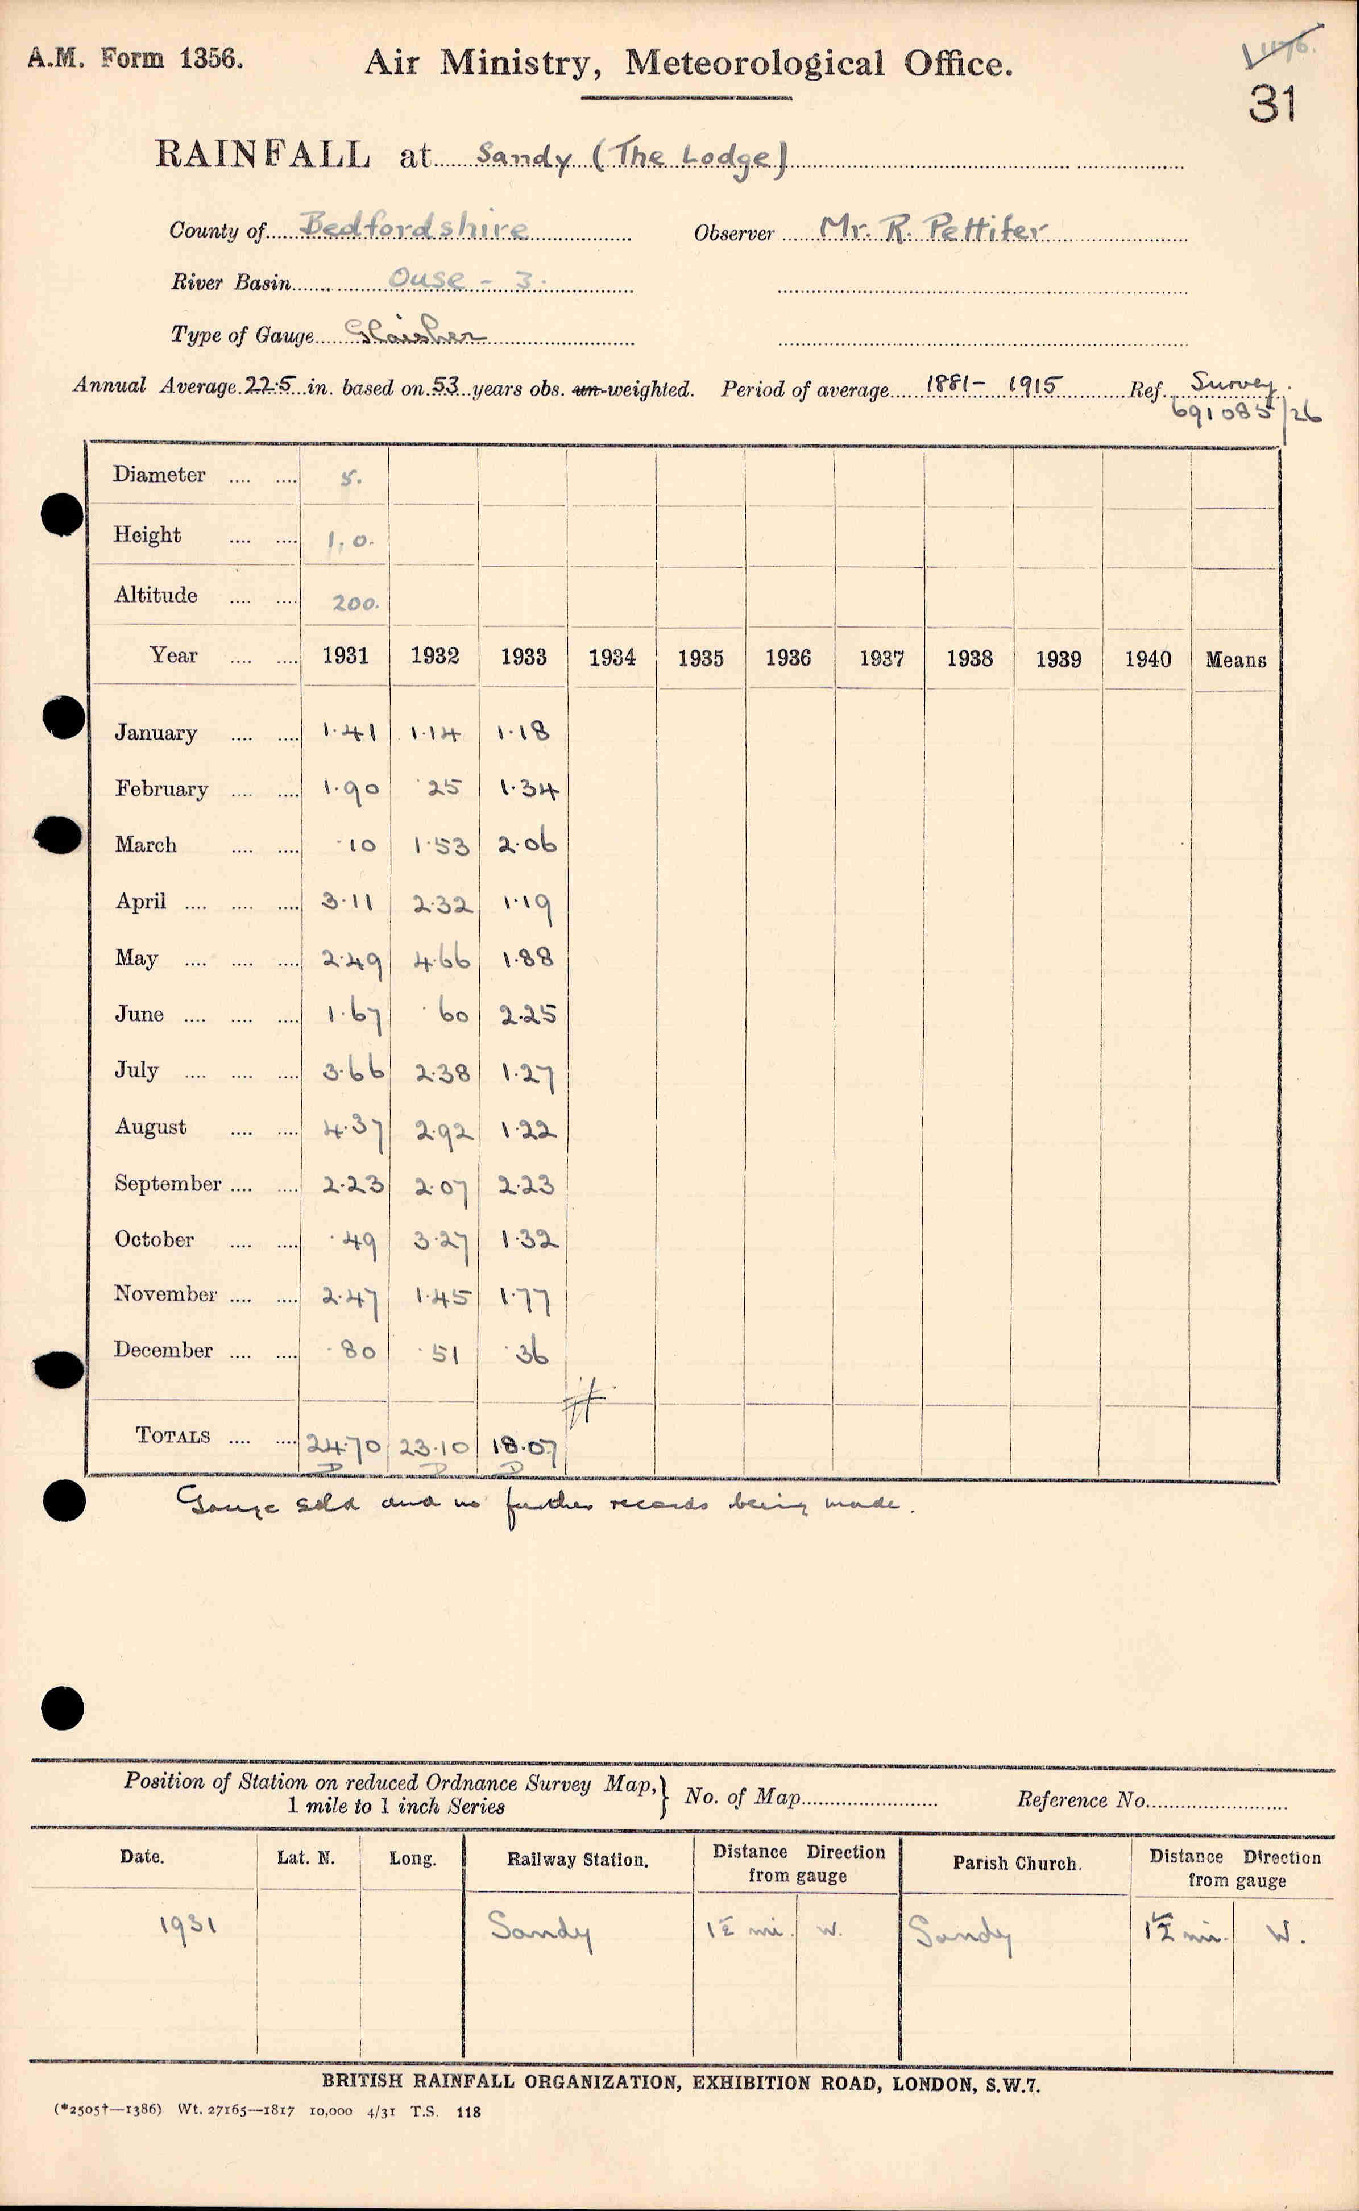 A.M. Form 1356.
Air Ministry, Meteorological Office.
1176.
31
RAINFALL at Sandy (The Lodge)
County of Bedfordshire Observer Mr. R. Pettifer
River Basin Ouse - 3.
Type of Gauge Glaisher
Annual Average 22.5 in. based on 53 years obs. un-weighted. Period of average 1881- 1915 Ref. Survey.
691085/26
Diameter .... .... 5.
Height .... .... 1,0.
Altitude .... .... 200.
Year .... .... 1931 1932 1933 1934 1935 1936 1937 1938 1939 1940 Means
January .... .... 1.41 1.14 1.18
February .... .... 1.90 .25 1.34
March .... .... .10 1.53 2.06
April .... .... .... 3.11 2.32 1.19
May .... .... .... 2.49 4.66 1.88
June .... .... .... 1.67 .60 2.25
July .... .... .... 3.66 2.38 1.27
August .... .... 4.37 2.92 1.22
September .... .... 2.23 2.07 2.23
October .... .... .49 3.27 1.32
November .... .... 2.47 1.45 1.77
December .... .... .80 .51 .36
TOTALS .... .... 24.70 23.10 18.07
D D D
Gauge sold and no further records being made.
Position of Station on reduced Ordnance Survey Map, } No. of Map Reference No.
1 mile to 1 inch Series
Date. Lat. N. Long. Railway Station. Distance Direction from gauge Parish Church. Distance Direction from gauge
1931 Sandy 1½ mi. W. Sandy 1½ mi. W.
BRITISH RAINFALL ORGANIZATION, EXHIBITION ROAD, LONDON, S.W.7.
(*2505†—1386) Wt. 27165—1817 10,000 4/31 T.S. 118